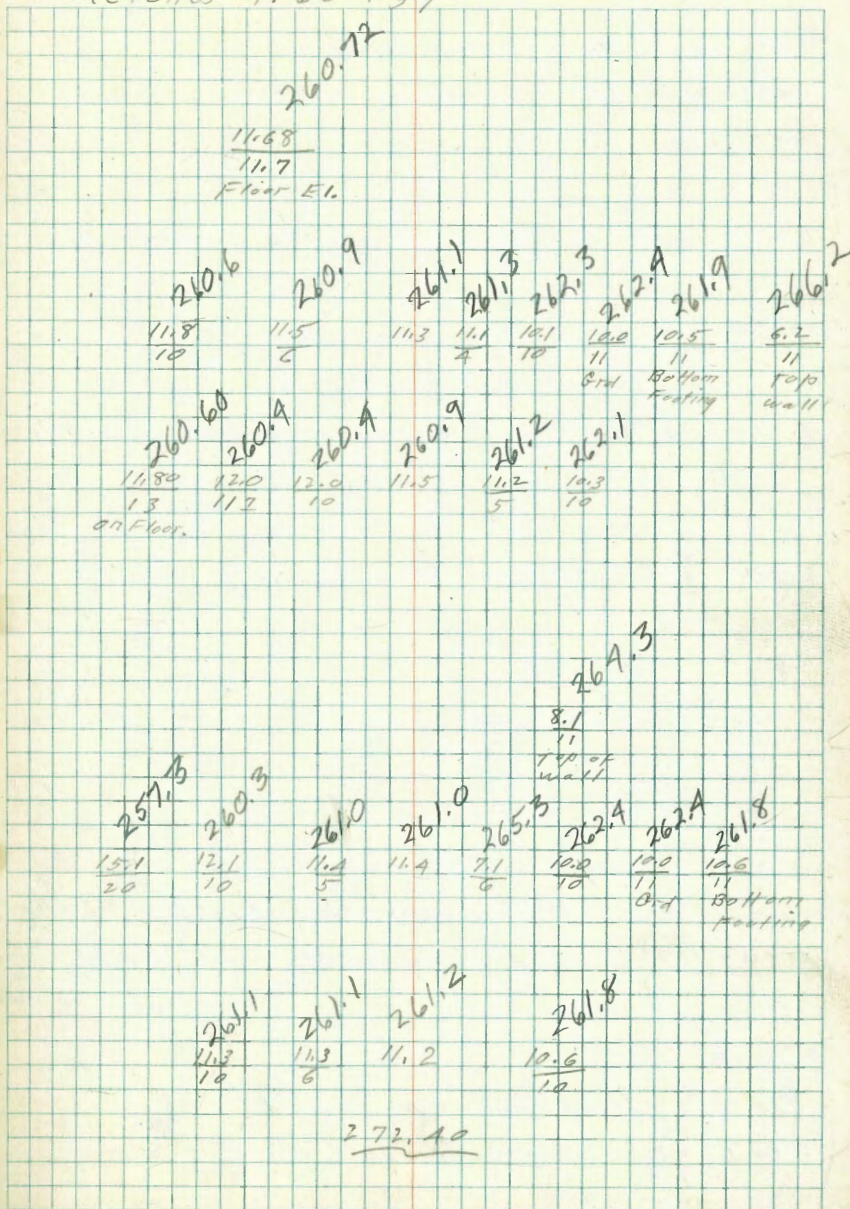 260.72
11.68
11.7
Floor El.
260.6 260.9 261.1 261.3 262.3 262.4 261.9 266.2
11.8 11.5 11.3 11.1 10.1 10.0 10.5 6.2
10 6 4 10 11 11 11
Grd Bottom Top
Footing wall
260.60 260.4 260.4 260.9 261.2 262.1
11.80 12.0 12.0 11.5 11.2 10.3
13 10 5 10
on Floor.
264.3
8.1
11
Top of
wall
257.3 260.3 261.0 261.0 265.3 262.4 262.4 261.8
15.1 12.1 11.4 11.4 7.1 10.0 10.0 10.6
20 10 5 6 10 11 11
Grd Bottom
Footing
261.1 261.1 261.2 261.8
11.3 11.3 11.2 10.6
10 6 10
272.40